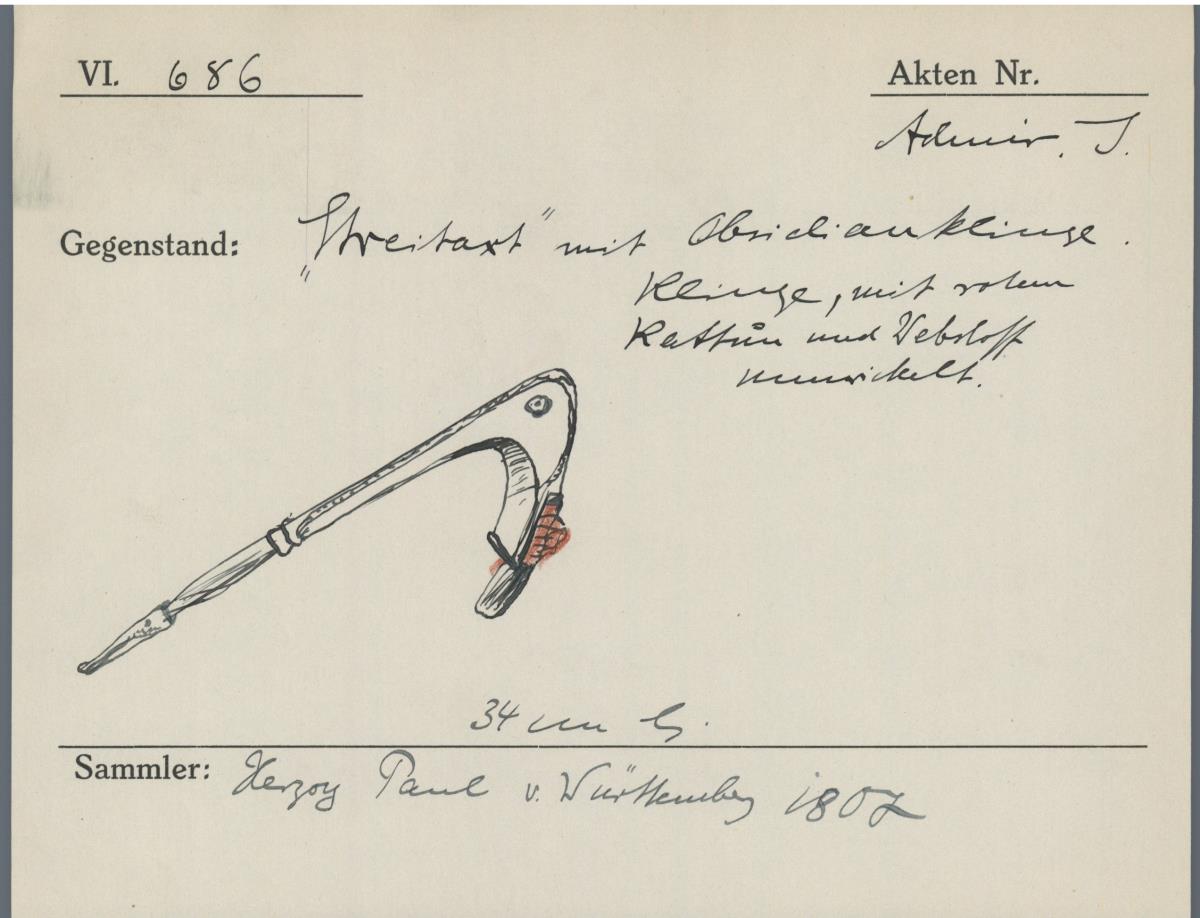 VI. 686
Akten Nr.
Admir. I.
Gegenstand: „Streitaxt“ mit Obsidianklinge.
Klinge, mit rotem
Kattun und Webstoff
umwickelt.
34 cm lg.
Sammler: Herzog Paul v. Württemberg 1807